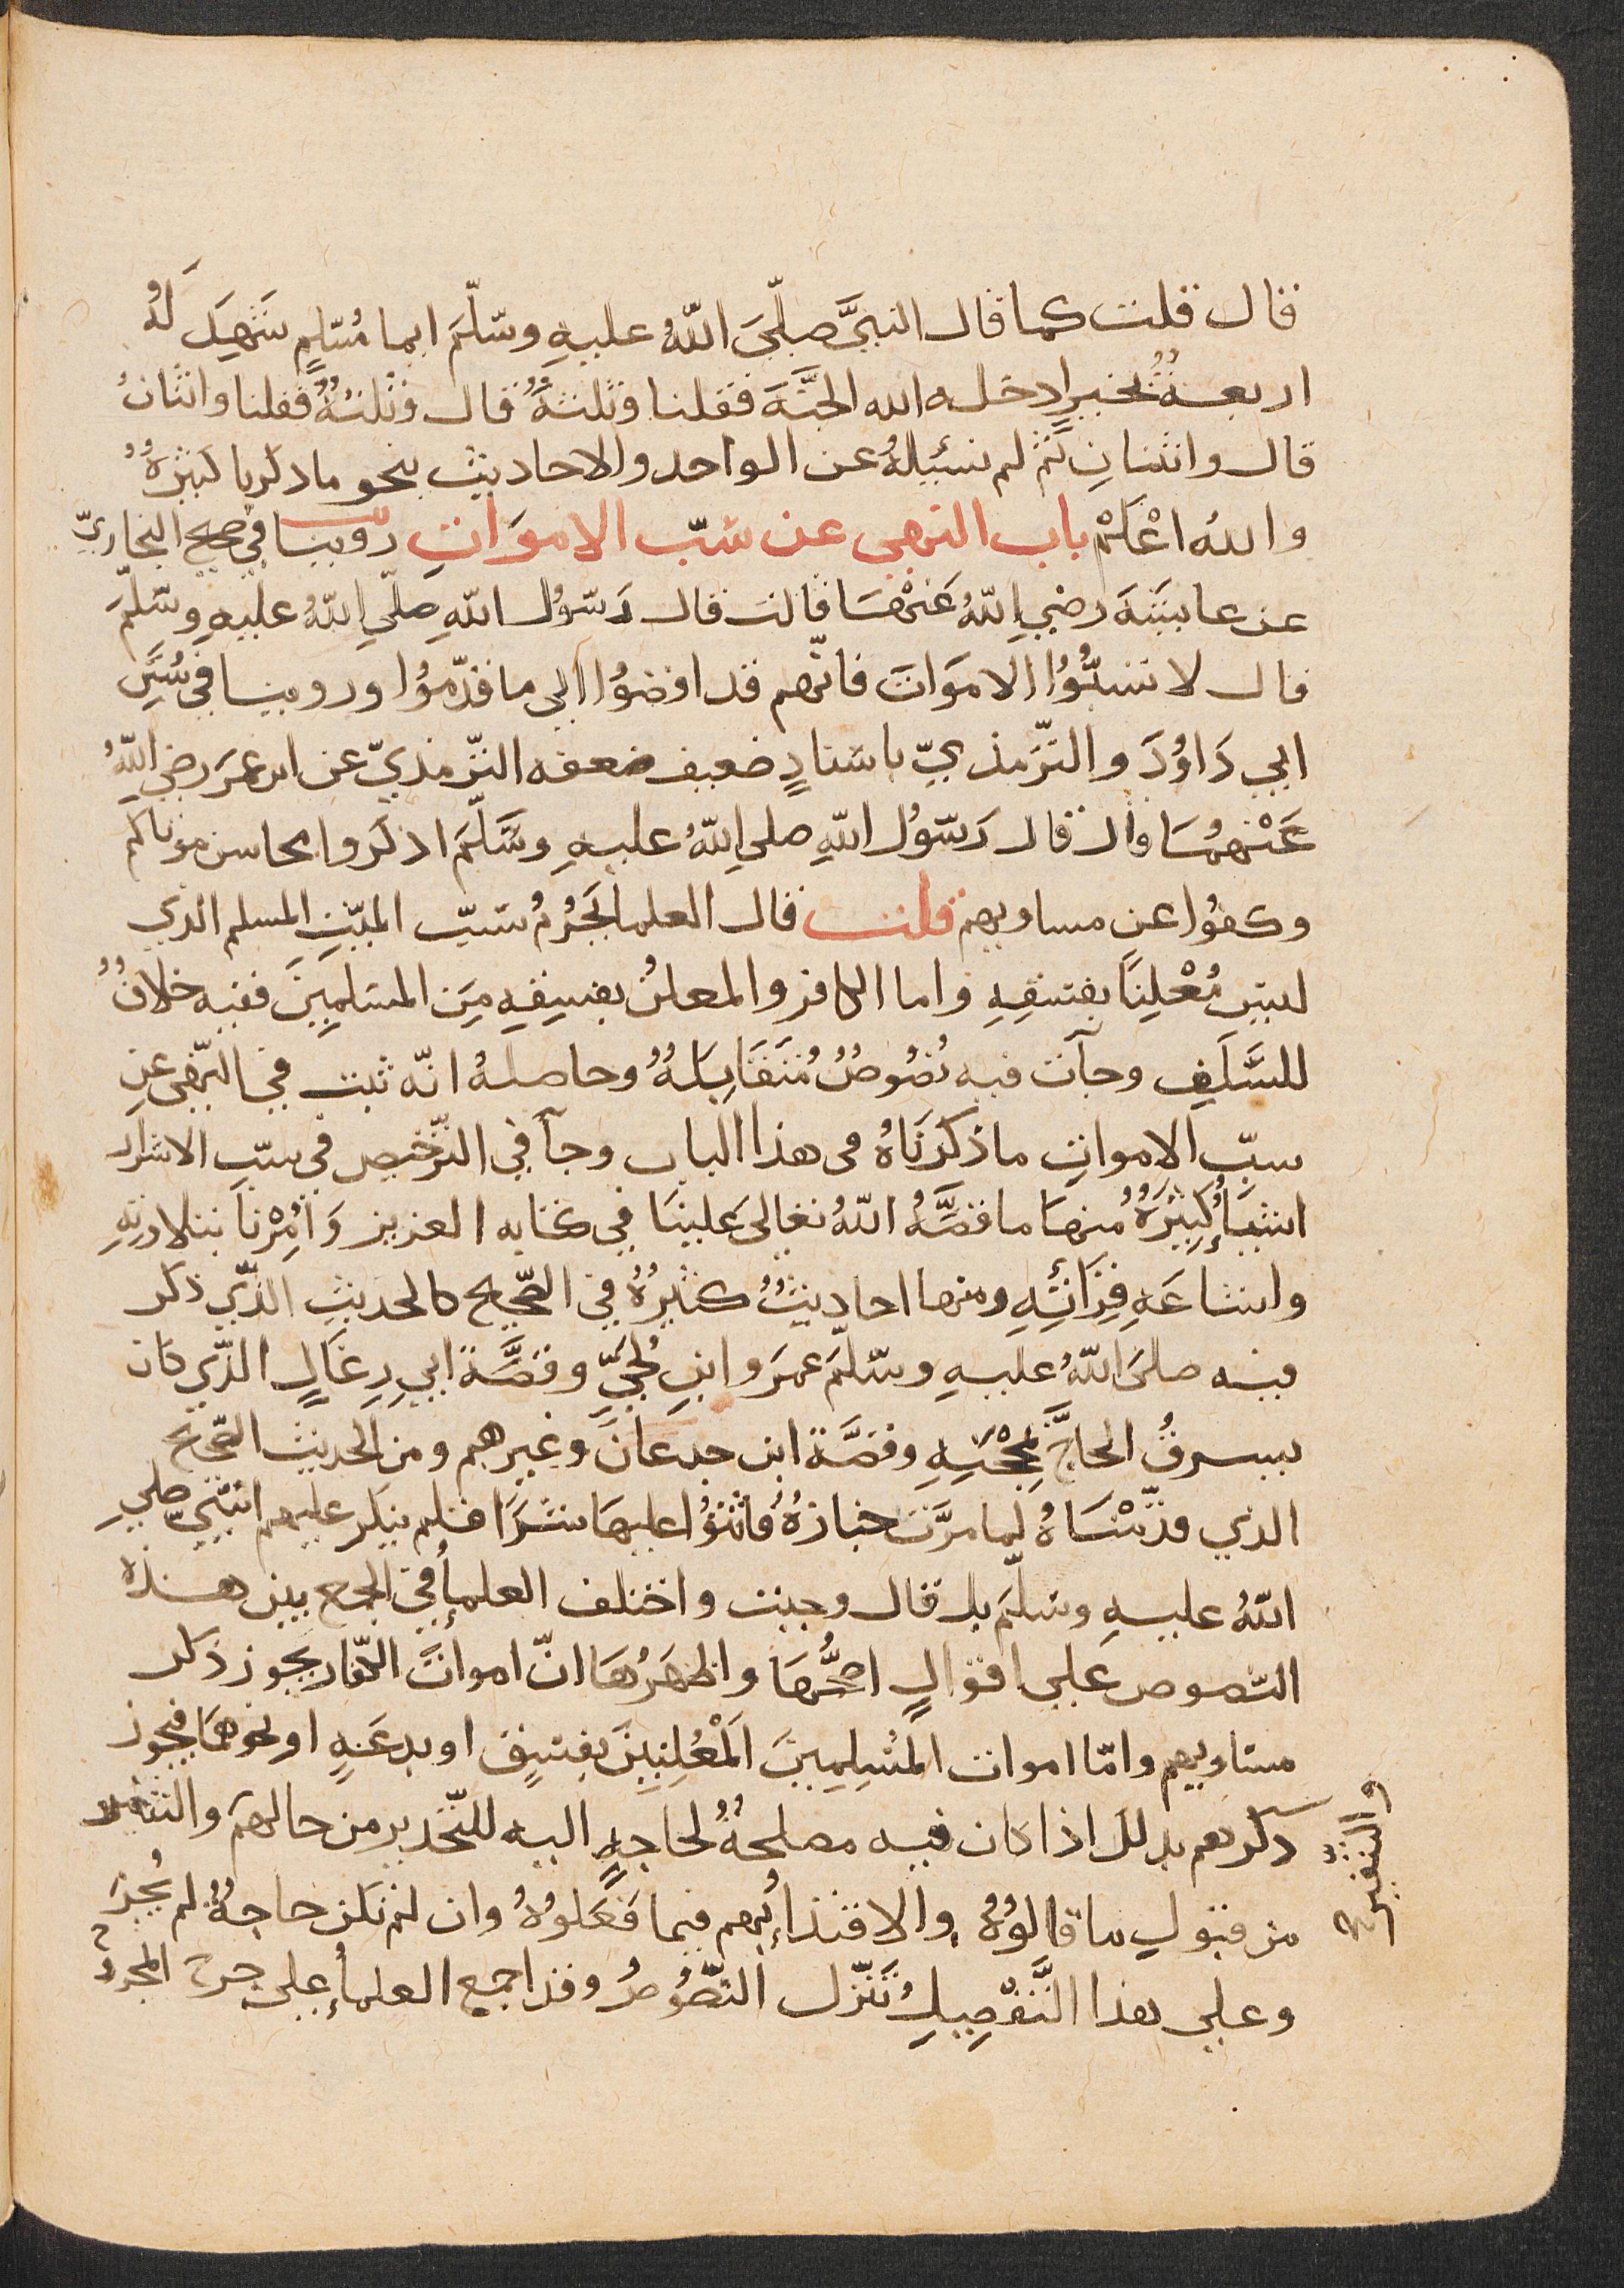 قال قلت كما قال النبيّ صلّى اللّهُ عليهِ وسلّمَ ايما مُسْلمٍ شَهِدَ لَهُ
اربعةٌ بخيرٍ ادخله الله الجنّةَ فقلنا وثلثةٌ قال وثلثةٌ فقلنا واثنان
قال واثنان ثم لم نسئلهُ عن الواحد والاحاديث بنحو ما ذكرنا كثيرةٌ
واللهُ اعْلَمْ باب النهى عن سَبّ الامْوَاتِ روينا في صحيح البخاريّ
عن عايشَةَ رضي اللّهُ عَنْهَا قالت قال رَسُول اللّهِ صلّى اللّهُ عليهِ وسلّمَ
قال لا تسبُّوُا الامَوَاتَ فانّهم قد افضوُا الى ما قدّموُا وروينا في سُنَنِ
ابي دَاوُدَ والترّمذيّ باسنادٍ ضعيف ضعفه الترّمذيّ عن ابن عمَرَ رضي اللّهُ
عَنْهُمَا قال قال رَسُولُ اللّهِ صلى اللّهُ عليهِ وسَلّمَ اذكروا محاسن موتاكم
وكفوُا عن مساويهم قلت قال العلما يَحْرُمُ سَبّ الميّتِ المسلم الذي
ليس مُعْلِنًا بفسقِهِ واما الكافر والمعلنُ بفسِقِهِ مِنَ المسْلمِينَ ففيه خلافٌ
للسَّلَفِ وجآت فيه نُصُوصٌ مُتَقَابِلَةٌ وحاصلهُ انّه ثبت في النّهى عن
سبّ الامواتِ ما ذكرنَاهُ فى هذا الباب وجآ في الترّخيص في سبّ الاشرار
اشيَأُ كثِيْرَةٌ منهَا ما قصَّهُ اللّهُ تعالى عَلينَا في كتابه العزيز وَاُمِرْنَا بتلاوتِهِ
واشاعَةِ قِرَائَتِهِ ومنها احاديثُ كثيرُةٌ في الصّحيح كالحديثِ الذّي ذكر
فيه صلىَ اللّهُ عليهِ وسلّمَ عمرَو ابنِ لُحَيٍّ وقصَّة ابي رِغَالٍ الذّي كان
يسرقُ الحاجَّ بمِحْجَنِهِ وقصَّة ابن جدعانَ وغيرهم ومن الحديث الصّحيح
الذي قدّمْنَاهُ لما مرّت جنازةٌ فاثنوُا عليهَا شَرًا فلم ينكر عليهم النبّي صلي
اللّهُ عليهِ وسلّمَ بل قال وجبت واختلف العلمأُ في الجمع بين هذه
النّصوص على اقوالٍ اصحُّهَا واظهَرُهَا انّ اموات الكفّار يجوز ذكر
مساويهم وامّا اموات المسْلِمِينَ المْعْلِنِينَ بفسقٍ او بدعَةٍ او نحوهمَا فيجوز
ذكرهم بذلك اذا كان فيه مصلحةٌ لحاجةٍ اليه للتّحذير من حالهم والتنفير
والتنفير
من قبول ما قالوُهُ والاقتداءِ بهم فيما فَعَلوُهُ وان لم تكن حاجةٌ لم يجُز
وعلى هذا التَّفْصِيلِ تُنَزّل النّصُوصُ وقد اجمع العلمأُ على جرح المجروُح